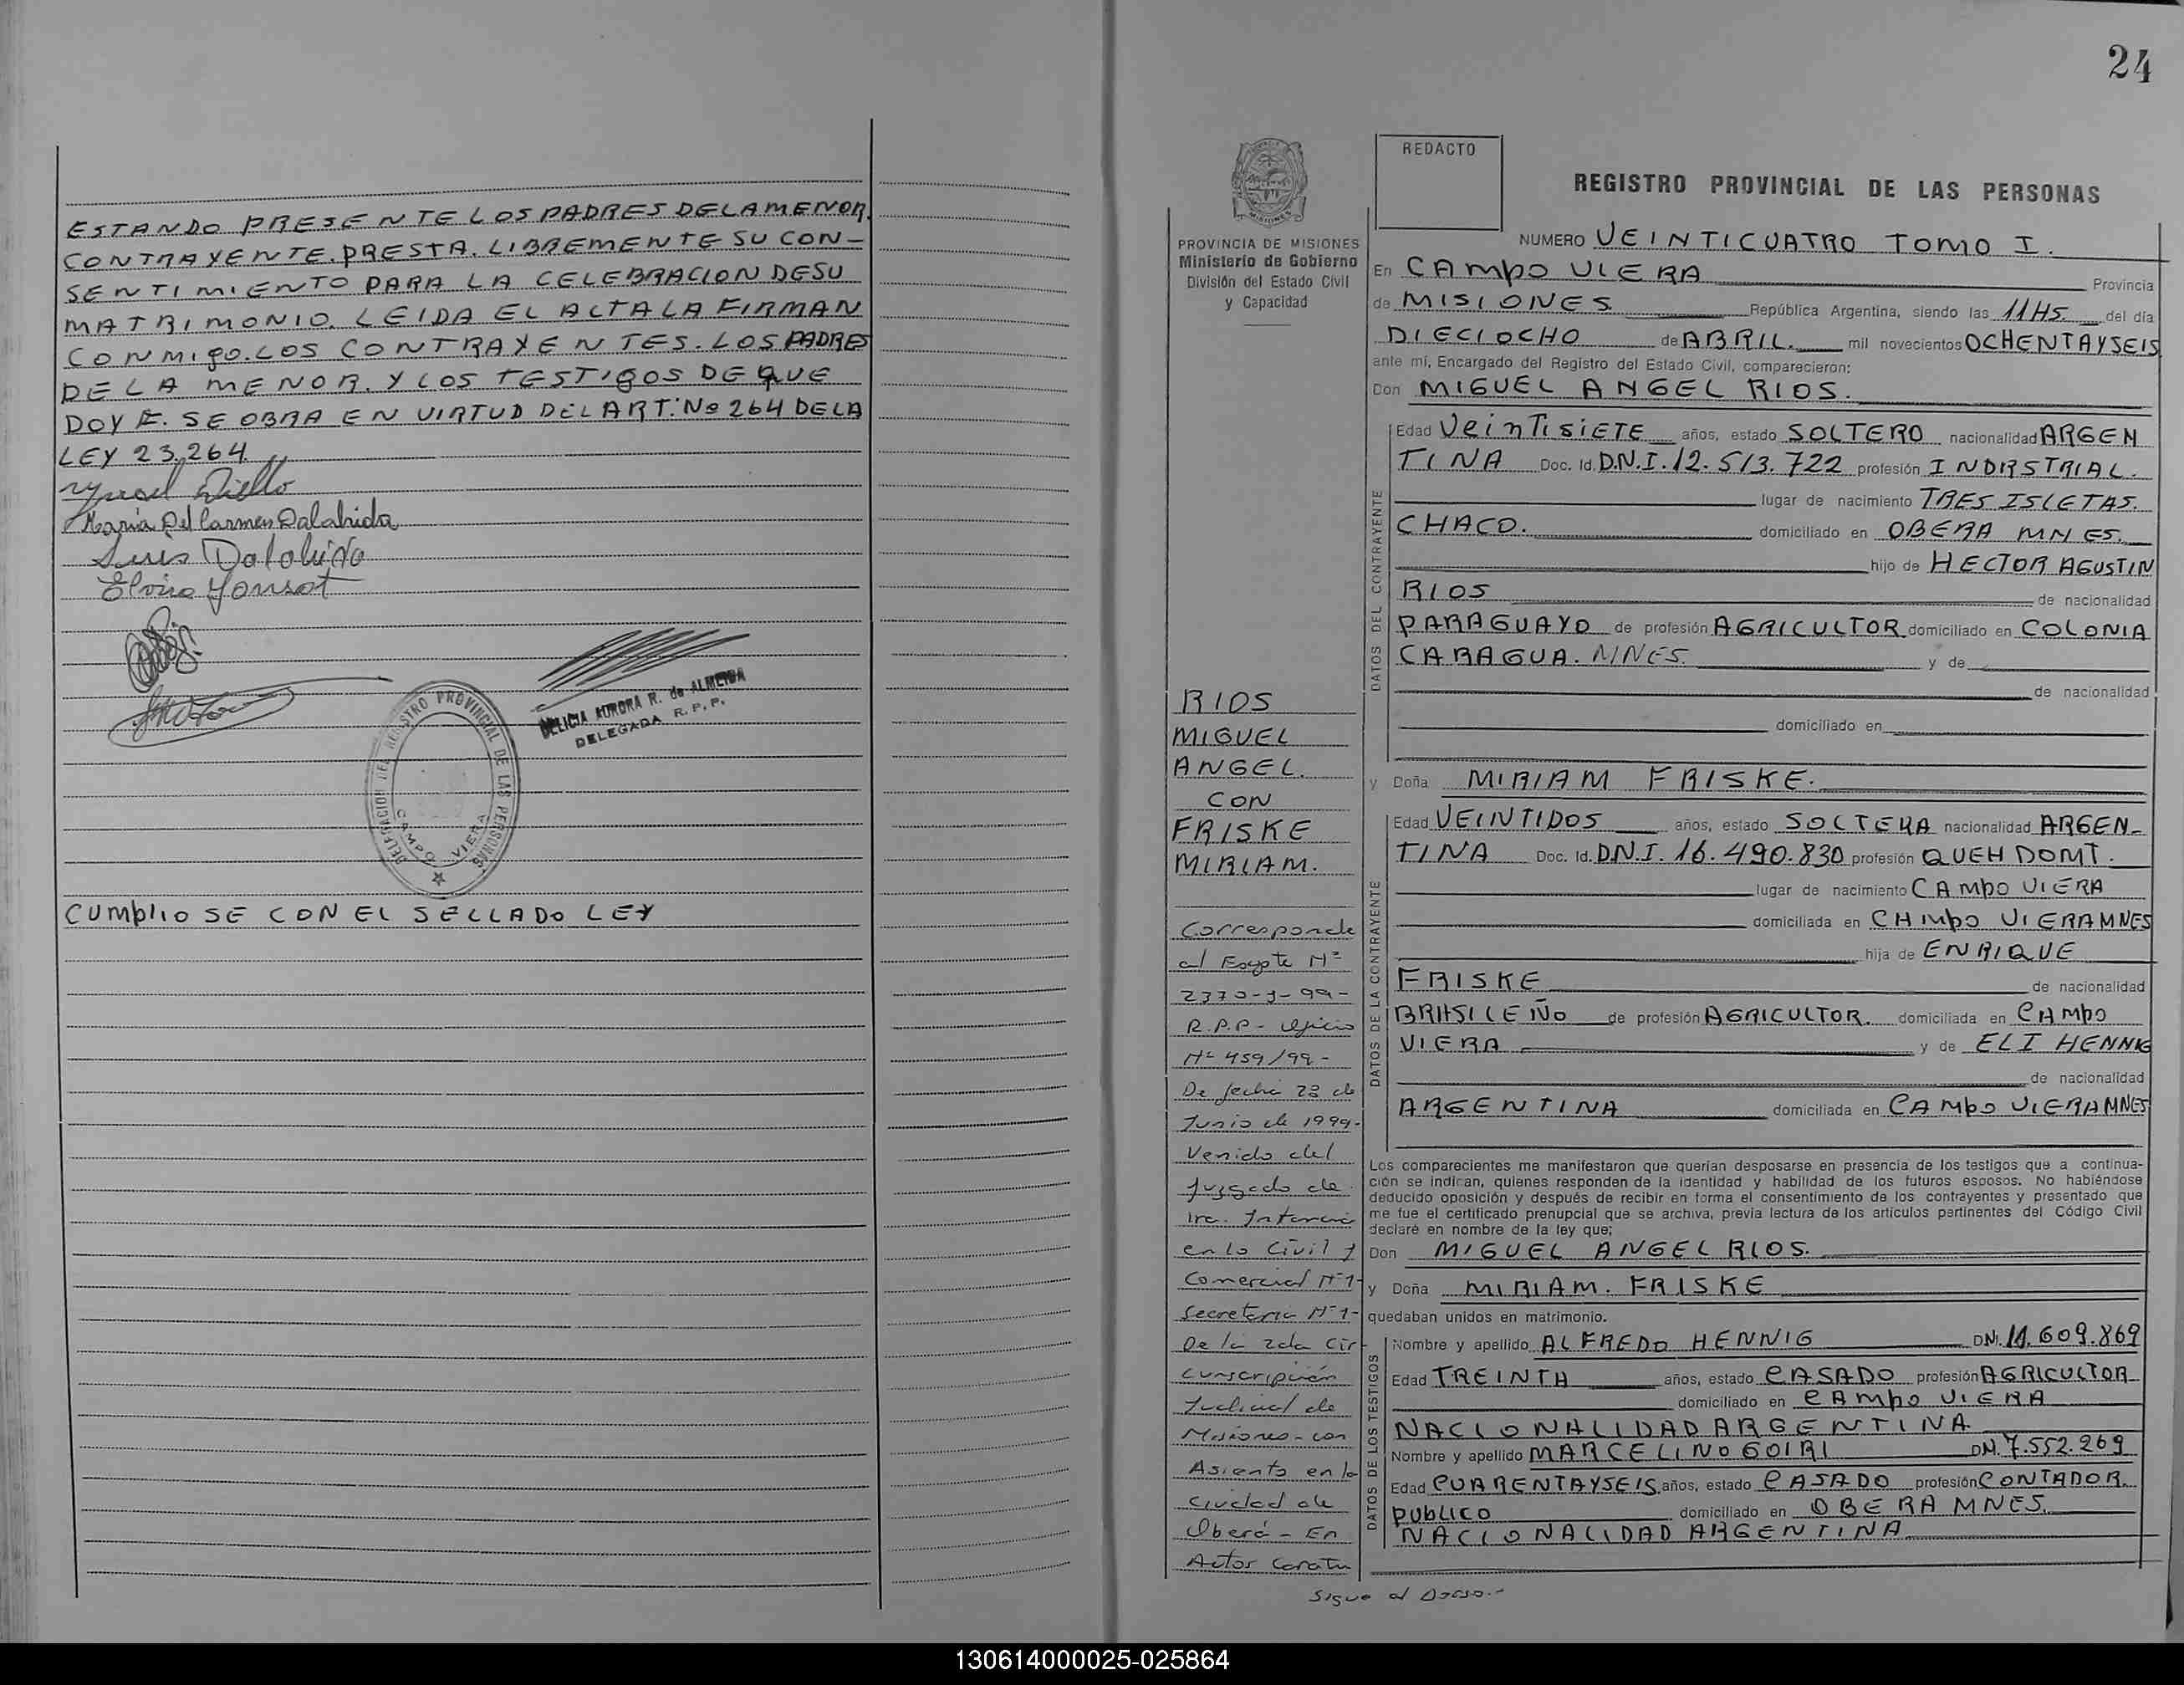 ESTANDO PRESENTE LOS PADRES DE LA MENOR
CONTRAYENTE. PRESTA. LIBREMENTE SU CON-
SENTIMIENTO PARA LA CELEBRACION DE SU
MATRIMONIO. LEIDA EL ACTA LA FIRMAN
CONMIGO. LOS CONTRAYENTES. LOS PADRES
DE LA MENOR. Y LOS TESTIGOS DE QUE
DOY F. SE OBRA EN VIRTUD DEL ART. Nº 264 DE LA
LEY 23.264
Maria Del Carmen Dalabrida
Luis Dalabrida
DELICIA AURORA R. de ALMEIDA
DELEGADA R. P. P.
DELEGACION DEL REGISTRO PROVINCIAL DE LAS PERSONAS
CAMPO VIERA
CUMPLIOSE CON EL SELLADO LEY
24
REDACTO
REGISTRO PROVINCIAL DE LAS PERSONAS
PROVINCIA DE MISIONES
Ministerio de Gobierno
División del Estado Civil
y Capacidad
NUMERO VEINTICUATRO TOMO I.
En CAMPO VIERA Provincia
de MISIONES República Argentina, siendo las 11HS. del día
DIECIOCHO de ABRIL. mil novecientos OCHENTAYSEIS
ante mí, Encargado del Registro del Estado Civil, comparecieron:
Don MIGUEL ANGEL RIOS.
DATOS DEL CONTRAYENTE
Edad VEINTISIETE años, estado SOLTERO nacionalidad ARGEN
TINA Doc. Id. D.N.I. 12.513.722 profesión INDRSTRIAL.
lugar de nacimiento TRES ISLETAS.
CHACO. domiciliado en OBERA MNES.
hijo de HECTOR AGUSTIN
RIOS de nacionalidad
PARAGUAYO de profesión AGRICULTOR domiciliado en COLONIA
CARAGUA. MNES. y de
de nacionalidad
domiciliado en
y Doña MIRIAM FRISKE.
DATOS DE LA CONTRAYENTE
Edad VEINTIDOS años, estado SOLTERA nacionalidad ARGEN-
TINA Doc. Id. D.N.I. 16.490.830 profesión QUEH DOMT.
lugar de nacimiento CAMPO VIERA
domiciliada en CAMPO VIERA MNES
hija de ENRIQUE
FRISKE de nacionalidad
BRASILEÑO de profesión AGRICULTOR. domiciliada en CAMPO
VIERA y de ELI HENNIG
de nacionalidad
ARGENTINA domiciliada en CAMPO VIERA MNES
Los comparecientes me manifestaron que querían desposarse en presencia de los testigos que a continua-
ción se indican, quienes responden de la identidad y habilidad de los futuros esposos. No habiéndose
deducido oposición y después de recibir en forma el consentimiento de los contrayentes y presentado que
me fue el certificado prenupcial que se archiva, previa lectura de los artículos pertinentes del Código Civil
declaré en nombre de la ley que;
Don MIGUEL ANGEL RIOS.
y Doña MIRIAM. FRISKE
quedaban unidos en matrimonio.
DATOS DE LOS TESTIGOS
Nombre y apellido ALFREDO HENNIG DNI. 11.609.869
Edad TREINTA años, estado CASADO profesión AGRICULTOR
domiciliado en CAMPO VIERA
NACIONALIDAD ARGENTINA
Nombre y apellido MARCELINO GOIRI DNI. 7.552.269
Edad CUARENTAYSEIS años, estado CASADO profesión CONTADOR.
PUBLICO domiciliado en OBERA MNES.
NACIONALIDAD ARGENTINA
RIOS
MIGUEL
ANGEL.
CON
FRISKE
MIRIAM.
Corresponde
al Expte Nº
2370-J-99-
R.P.P- Oficio
Nº 459/99-
De fecha 23 de
Junio de 1999-
Venido del
Juzgado de
1ra. Instancia
en lo Civil y
Comercial Nº 1-
Secretaria Nº 1-
De la 2da Cir-
cunscripción
Judicial de
Misiones - con
Asiento en la
Ciudad de
Oberá - En
Autos Caratu
Sigue al Dorso.-
130614000025-025864